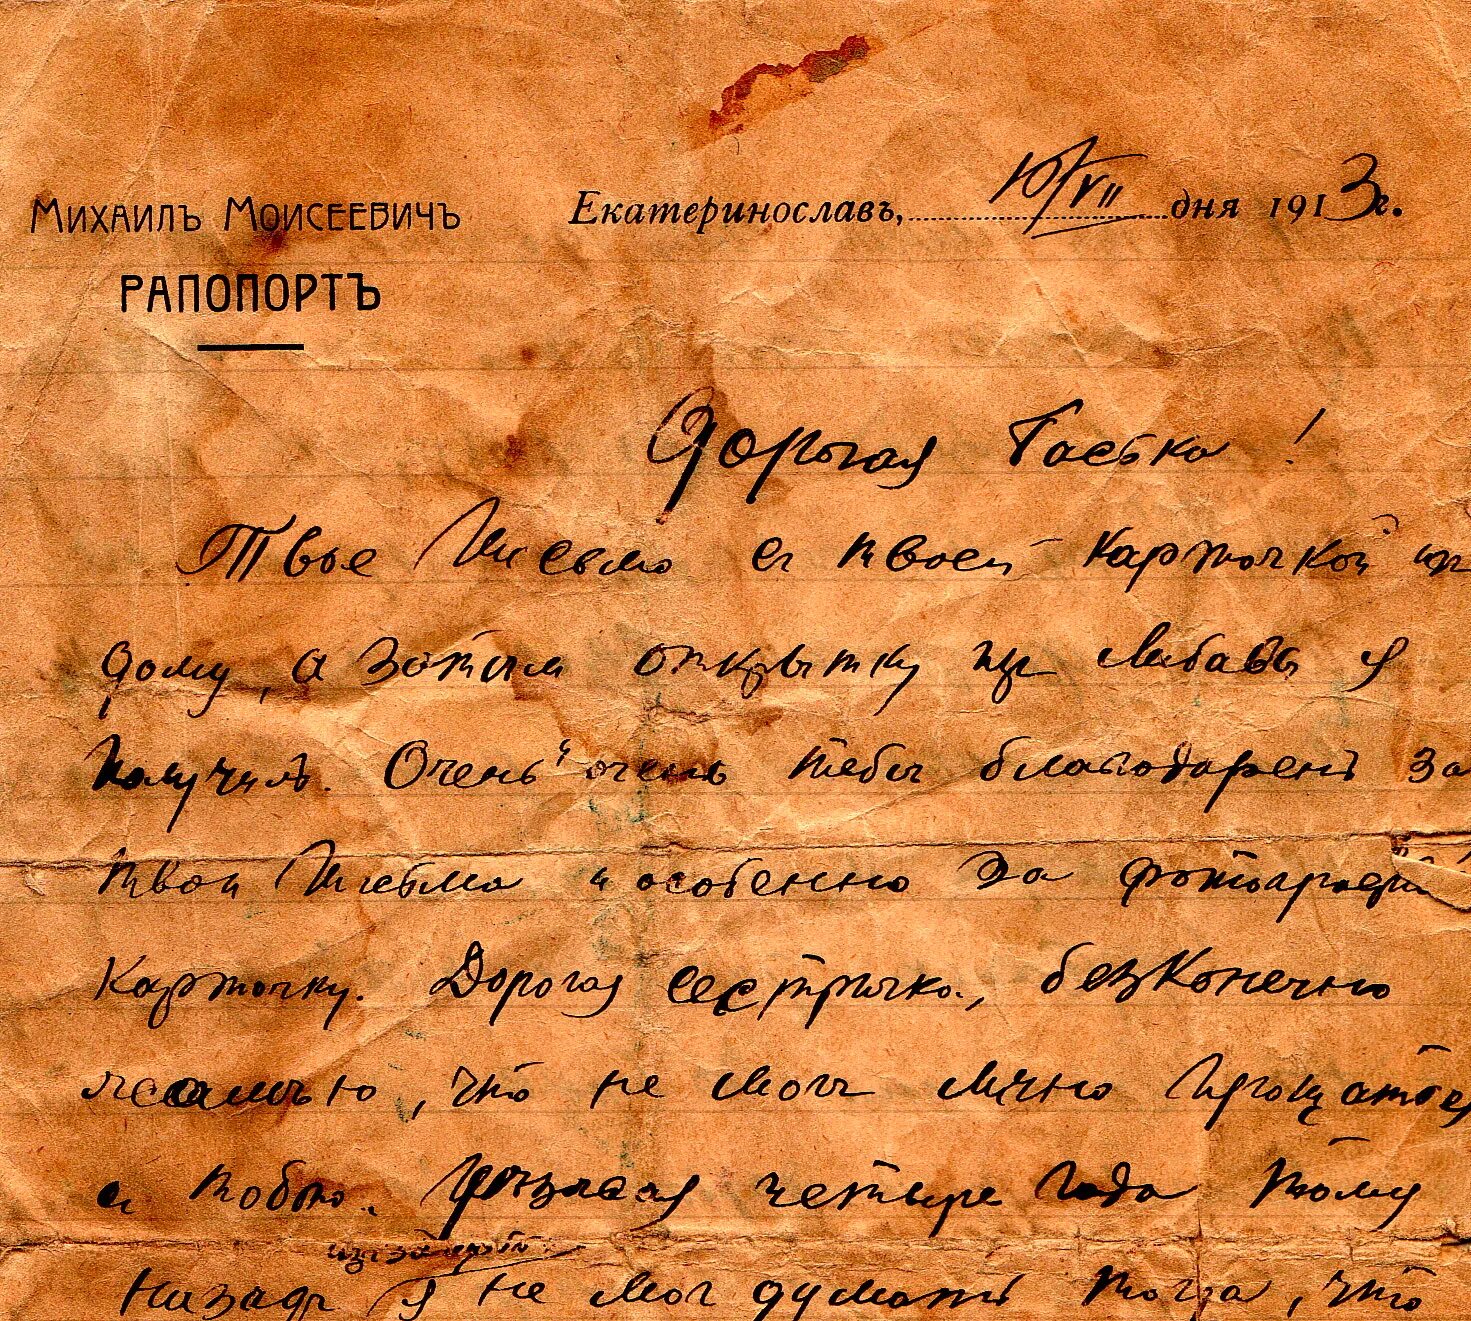 Михаилъ Моисеевичъ
Рапопортъ
Екатеринославъ, 10/VII дня 1913 г.
Дорогая Таська!
Твое письмо съ твоей карточкой из
дому, а затѣм открытку из Либавы я
получилъ. Очень очень тебѣ благодаренъ за
твои письма и особенно за фотографи
карточку. Дорогая сестричка, безконечно
что не могъ лично прощаться
съ тобою. четыре года тому
назадъ я не мог думать тогда, что